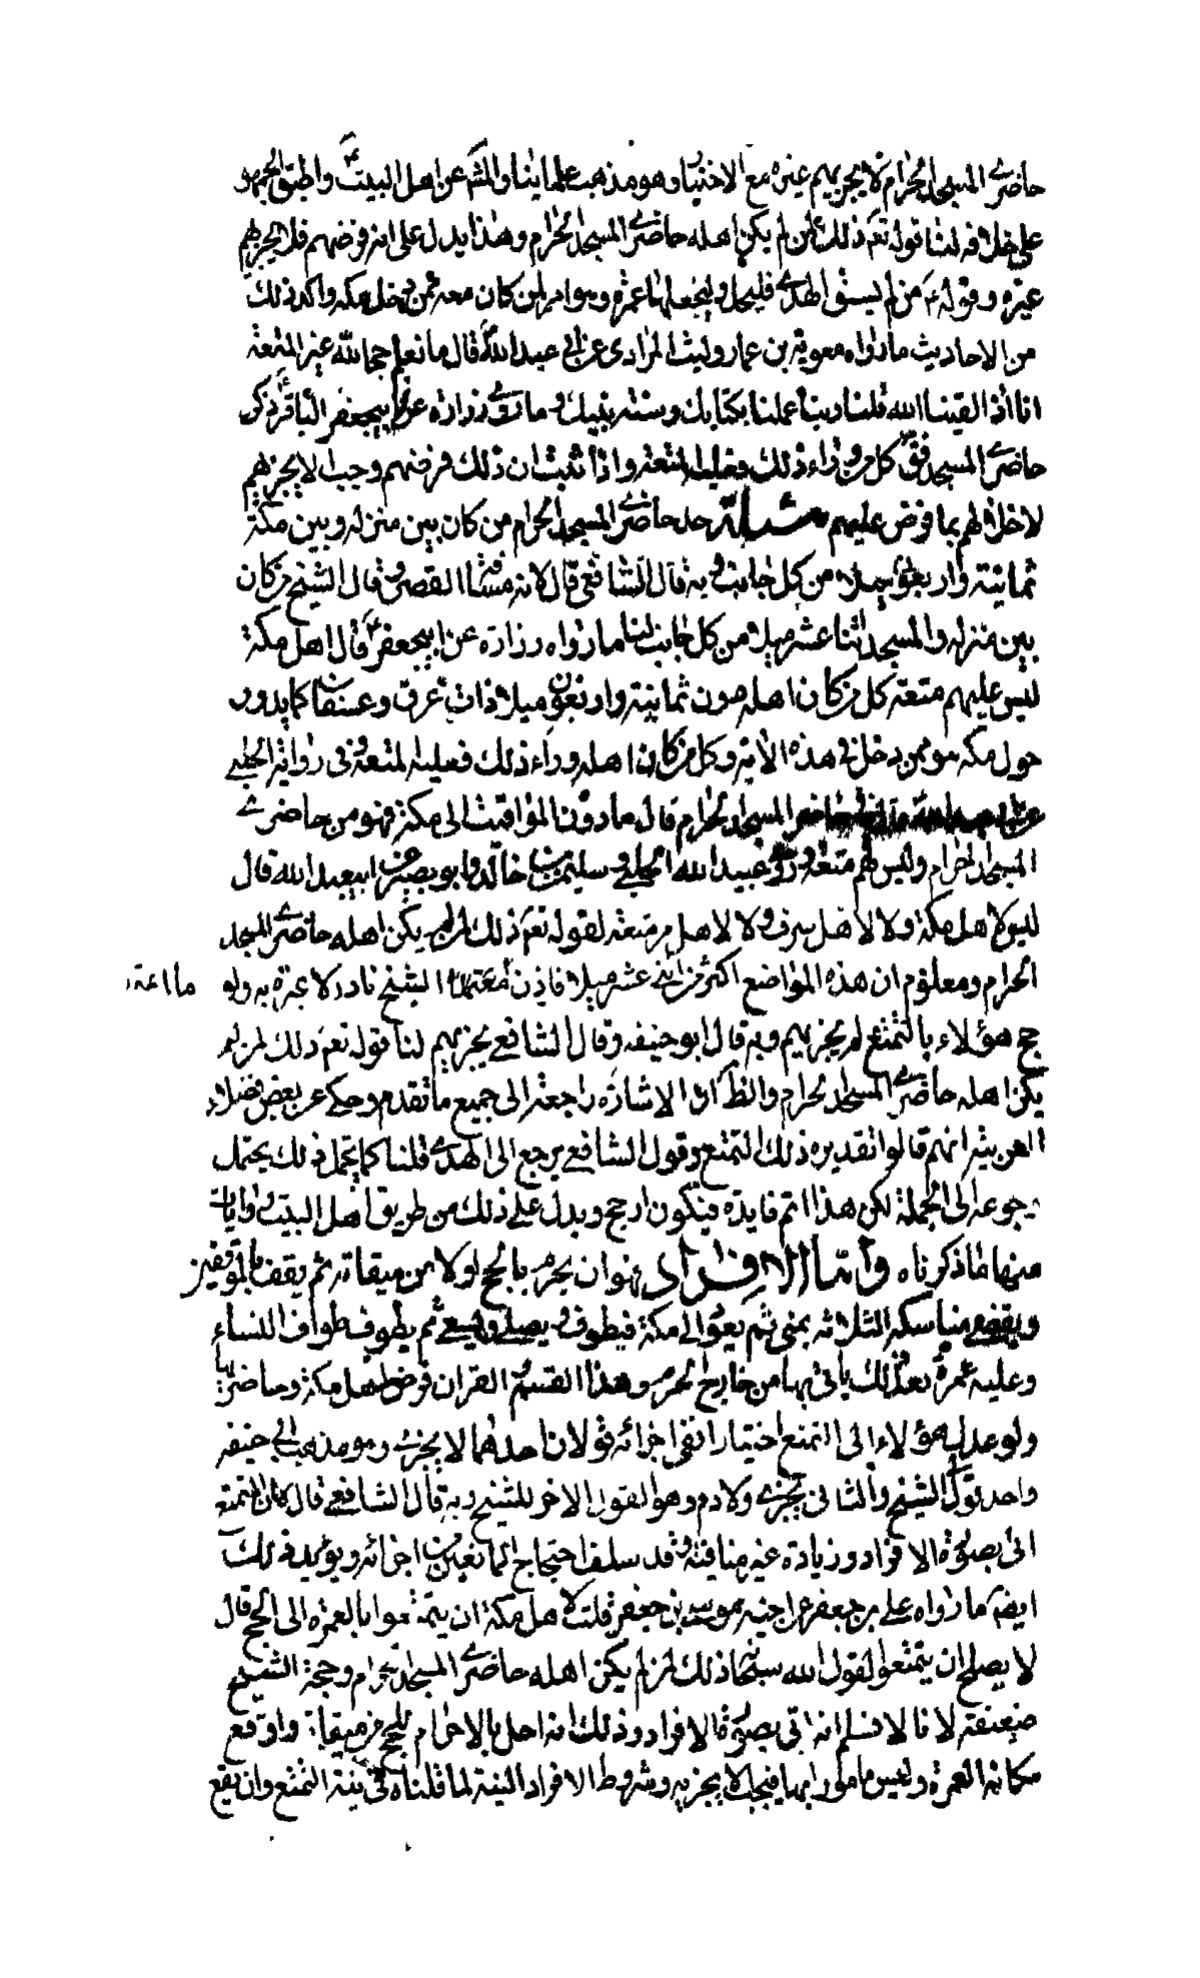 حاضرى المسجد الحرام لا يجزيهم غيره مع الاختيار وهو مذهب علمائنا والمش عن اهل البيت ع واطبق الجمهو
على خلافه لنا قوله تع ذلك لمن لم يكن اهله حاضرى المسجد الحرام وهذا يدل على انه فرضهم فلا يجزيهم
غيره وقوله ع من لم يسق الهدى فليحل وليجعلها عمرة وهو امر لمن كان معه ممن دخل مكه واكد ذلك
من الاحاديث ما رواه معوية بن عمار وليث المرادى عن ابى عبد الله ع قال ما نعلم حجا لله غير المتعة
انا اذا لقينا الله قلنا ربنا عملنا بكتابك وسنة نبيك وما روى زرارة عن ابيجعفر الباقر ع ذكر
حاضرى المسجد فق كل من وراء ذلك فعليه المتعة واذا ثبت ان ذلك فرضهم وجب الا يجزيهم
لاخلالهم بما فرض عليهم مسئلة حد حاضرى المسجد الحرام من كان بين منزله وبين مكة
ثمانية واربعون ميلا من كل جانب وبه قال الشافعى قال لانه مسافة القصر وقال الشيخ من كان
بين منزله والمسجد اثنا عشر ميلا من كل جانب لنا ما رواه زرارة عن ابيجعفر ع قال اهل مكة
ليس عليهم متعة كل من كان اهله دون ثمانية واربعون ميلا ذات عرق وعسفان كما يدور
حول مكه فهو ممن دخل فى هذه الاية وكل من كان اهله وراء ذلك فعليه المتعة وفى رواية الحلبى
عن ابى عبد الله حاضرى المسجد الحرام قال ما دون المواقيت الى مكة فهو من حاضرى
المسجد الحرام وليس لهم متعة وروى عبيد الله الحلبى وسليمن بن خالد وابو بصير عن ابيعبد الله قال
ليس لاهل مكة ولا لاهل سرف ولا لاهل مر متعة لقوله تع ذلك لمن لم يكن اهله حاضرى المسجد
الحرام ومعلوم ان هذه المواضع اكثر من اثنى عشر ميلا فاذن الشيخ نادر لا عبرة به ولو
حج هؤلاء بالتمتع لم يجزيهم وبه قال ابو حنيفه وقال الشافعى يجزيهم لنا قوله تع ذلك لمن لم
يكن اهله حاضرى المسجد الحرام والظ ان الاشارة راجعة الى جميع ما تقدم وحكى عن بعض فضلاء
العربية انهم قالوا تقديره ذلك التمتع وقول الشافعى يرجع الى الهدى قلنا كما يحتمل ذلك يحتمل
رجوعه الى الجملة لكن هذا اتم فايدة فيكون ارجح ويدل على ذلك من طريق اهل البيت روايات
منها ما ذكرناه واما الافراد فهو ان يحرم بالحج اولا من ميقاته ثم يقف بالموقفين
ويقضى مناسكه الثلاثه بمنى ثم يعود الى مكة فيطوف ويصلى ويسعى ثم يطوف طواف النساء
وعليه عمرة بعد ذلك ياتى بها من خارج الحرم وهذا القسم القران فرض اهل مكة وحاضريها
ولو عدل هؤلاء الى التمتع اختيارا ففى اجزائه قولان احدهما لا يجزى وهو مذهب ابى حنيفه
واحد قولى الشيخ والثانى يجزى ولا دم وهو القول الاخر للشيخ وبه قال الشافعى قال لان المتمتع
اتى بصورة الافراد وزيادة غير منافية وقد سلف احتجاج المانعين من اجزائه ويؤيد ذلك
ايضا ما رواه على بن جعفر عن اخيه موسى بن جعفر قلت لاهل مكة ان يتمتعوا بالعمرة الى الحج قال
لا يصلح ان يتمتعوا لقول الله سبحانه ذلك لمن لم يكن اهله حاضرى المسجد الحرام وحجة الشيخ
ضعيفة لانا لا نسلم انه اتى بصورة الافراد وذلك انه اخل بالاحرام للحج من ميقاته واوقع
مكانه العمرة وليس مامورا بها فيجب الا يجزيه وشروط الافراد النية لما قلناه فى نية التمتع وان يقع